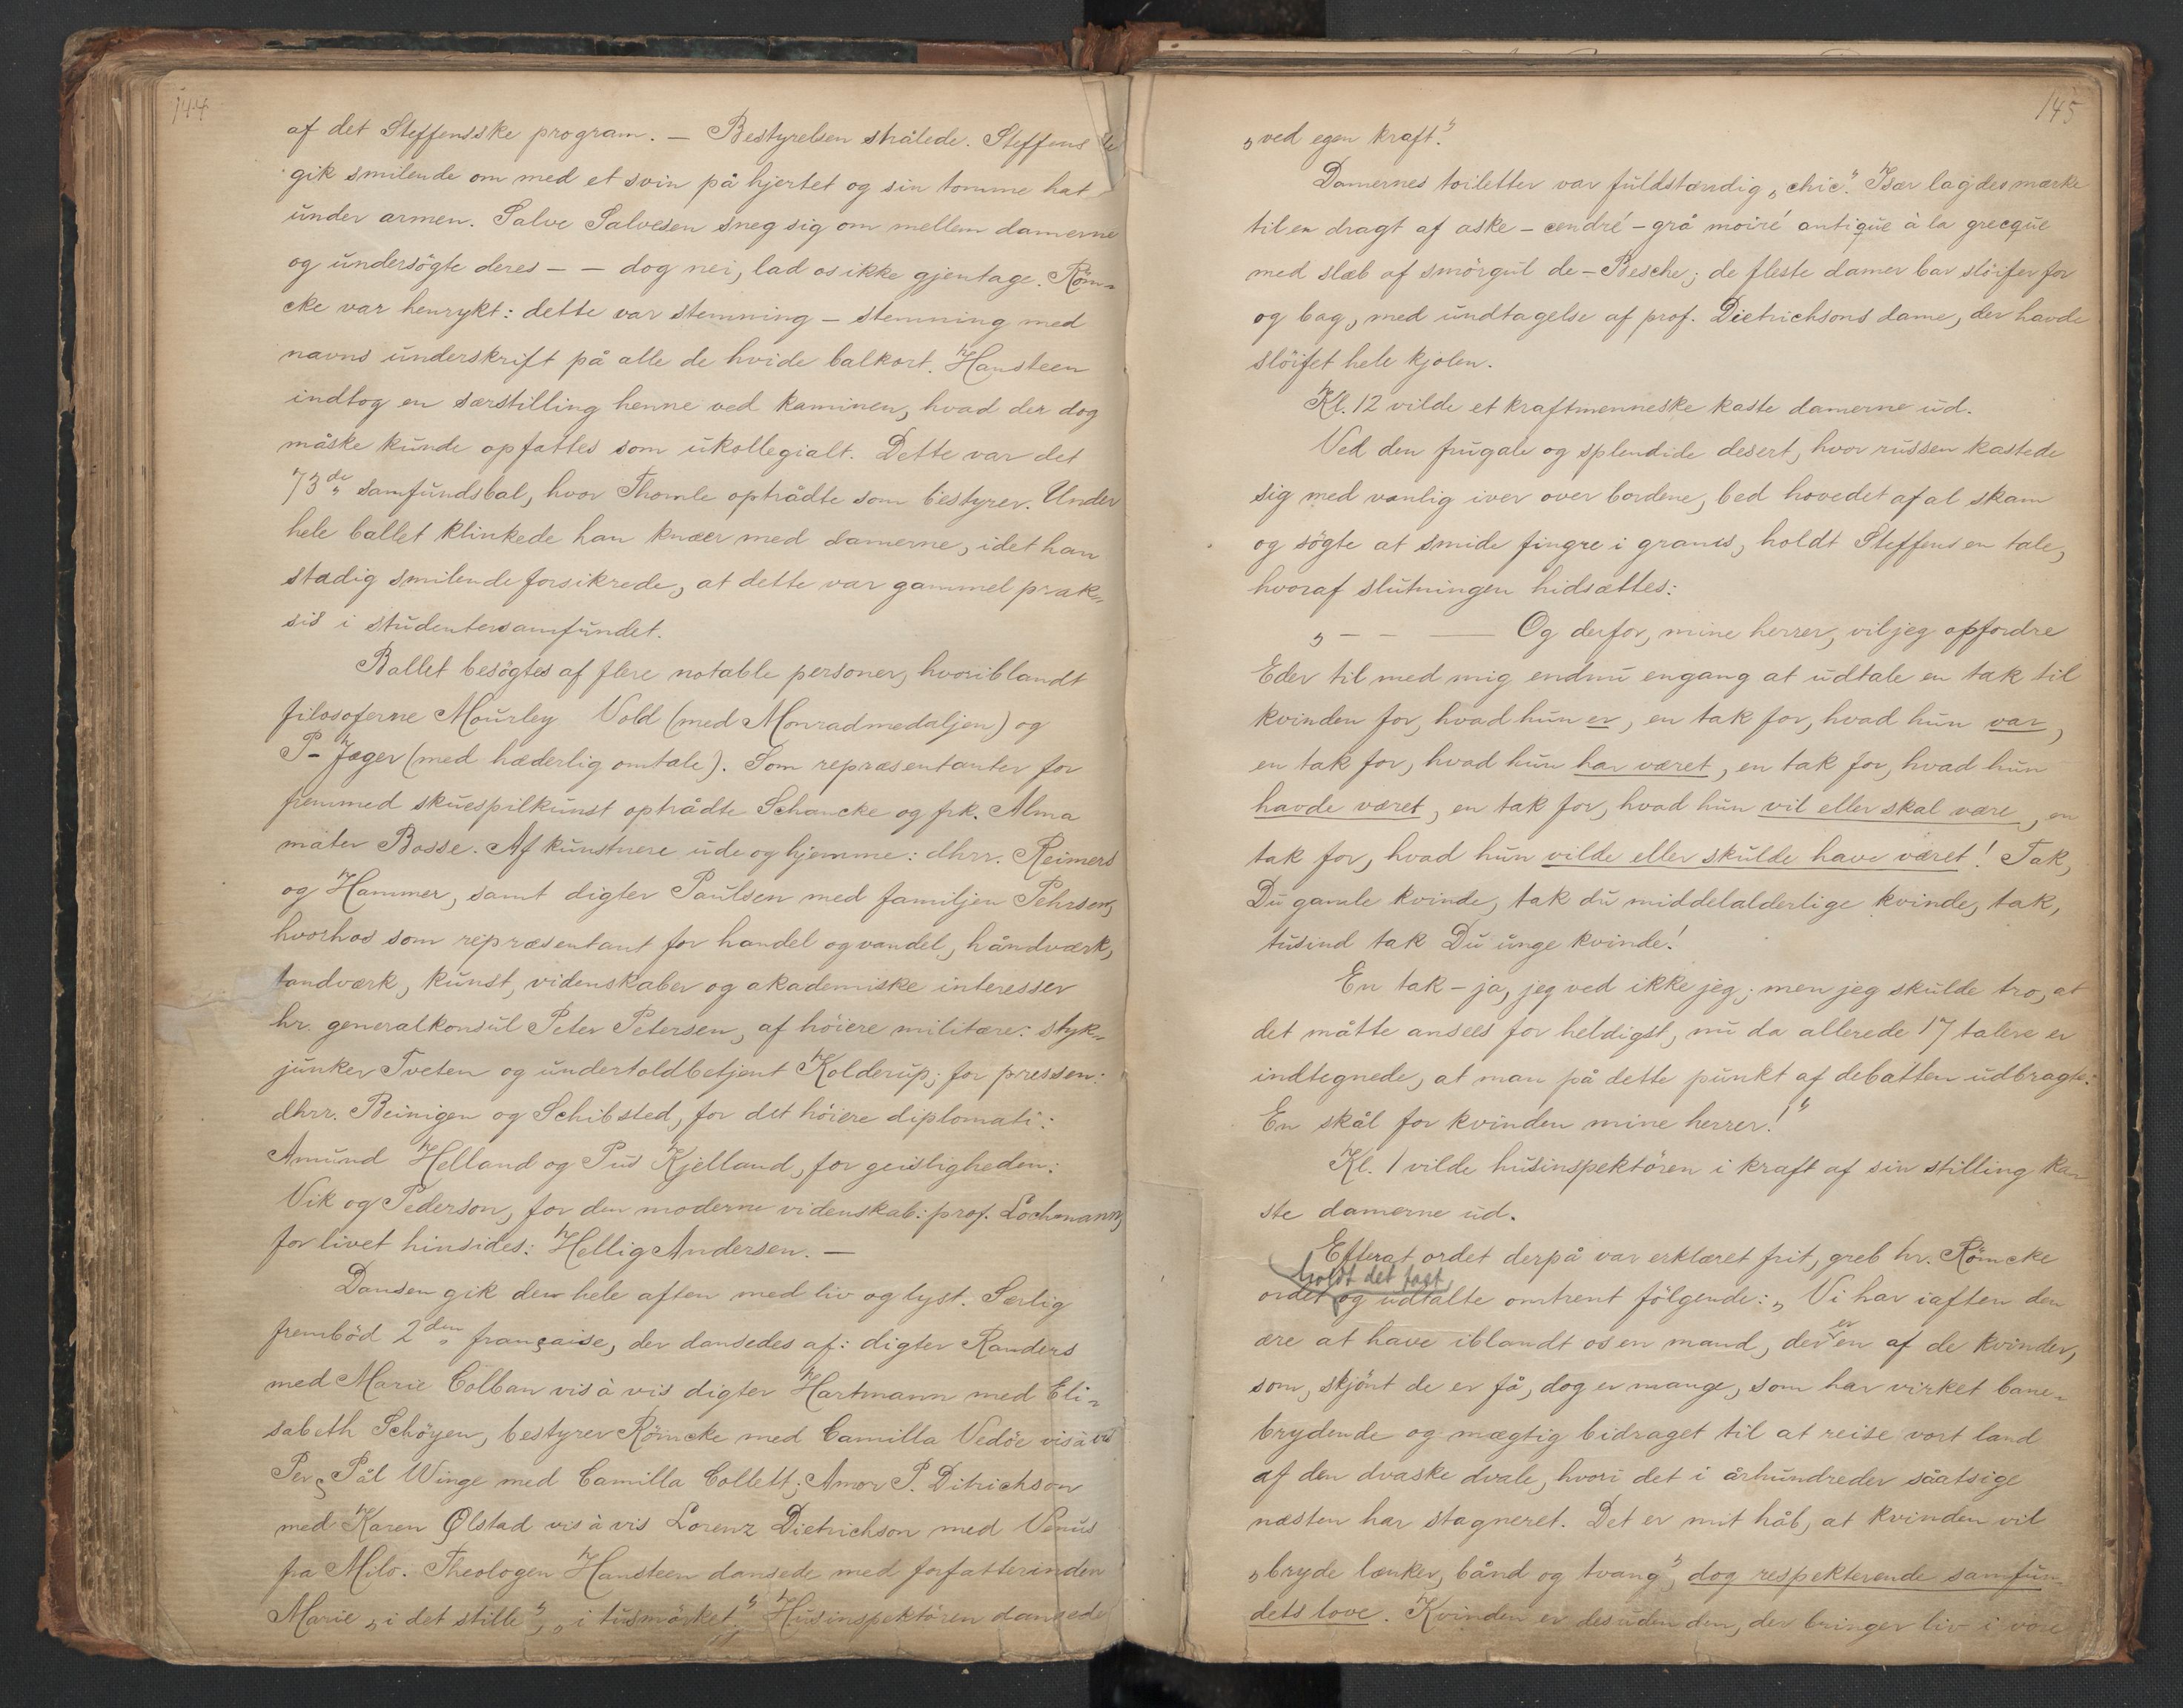 144
af det Steffensske program. — Bestyrelsen strålede. Steffens
gik smilende om med et svin på hjertet og sin tomme hat
under armen. Salve Salvesen sneg sig om mellem damerne
og undersögte deres — — dog nei, lad os ikke gjentage. Röm-
cke var henrykt: dette var stemning — stemning med
navns underskrift på alle de hvide balkort. Hansteen
indtog en særstilling henne ved kaminen, hvad der dog
måske kunde opfattes som ukollegialt. Dette var det
73de samfundsbal, hvor Thomle optrådte som bestyrer. Under
hele ballet klinkede han knæer med damerne, idet han
stadig smilende forsikrede, at dette var gammel prak-
sis i studentersamfundet.
Ballet besögtes af flere notable personer, hvoriblandt
filosoferne Mourley Vold (med Monradmedaljen) og
P- Jæger (med hæderlig omtale). Som repræsentanter for
fremmed skuespilkunst optrådte Schancke og frk. Alma
mater Bosse. Af kunstnere ude og hjemme: dhrr. Reimers
og Hammer, samt digter Paulsen med familjen Pehrsen,
hvorhos som repræsentant for handel og vandel, håndværk,
tandværk, kunst, videnskaber og akademiske interesser
hr. generalkonsul Peter Petersen, af höiere militære: styk-
junker Tveten og undertoldbetjent Kolderup; for pressen:
dhrr. Beinigen og Schibsted, for det höiere diplomati:
Amund Helland og Pus Kjelland, for geistligheden:
Vik og Pederson, for den moderne videnskab: prof. Lochmann,
for livet hinsides: Hellig Andersen. —
Dansen gik den hele aften med liv og lyst. Særlig
frembød 2den française, der dansedes af: digter Randers
med Marie Colban vis à vis digter Hartmann med Eli-
sabeth Schöyen, bestyrer Römcke med Camilla Vedöe vis à vis
Per Pål Winge med Camilla Collett; Amor P. Ditrichson
med Karen Ølstad vis à vis Lorenz Dietrichson med Venus
fra Milo. Theologen Hansteen dansede med forfatterinden
Marie „i det stille“, „i tusmörket.“ Husinspektören dansede
145
„ved egen kraft.“
Damernes toiletter var fuldstændig „chic“. Især lagdes mærke
til en dragt af aske — cendré — grå moiré antique à la grecque
med slæb af smörgul de-Besche; de fleste damer bar slöifer for
og bag, med undtagelse af prof. Dietrichsons dame, der havde
slöifet hele kjolen.
Kl. 12 vilde et kraftmenneske kaste damerne ud.
Ved den frugale og splendide desert, hvor russen kastede
sig med vanlig iver over bordene, bed hovedet af al skam
og sögte at smide fingre i granis, holdt Steffens en tale,
hvoraf slutningen hidsættes:
„ — — — Og derfor, mine herrer, vil jeg opfordre
Eder til med mig endnu engang at udtale en tak til
kvinden for, hvad hun er, en tak for, hvad hun var,
en tak for, hvad hun har været, en tak for, hvad hun
havde været, en tak for, hvad hun vil eller skal være, en
tak for, hvad hun vilde eller skulde have været! Tak,
Du gamle kvinde, tak du middelalderlige kvinde, tak,
tusind tak Du unge kvinde!
En tak — ja, jeg ved ikke jeg; men jeg skulde tro, at
det måtte ansees for heldigst, nu da allerede 17 talere er
indtegnede, at man på dette punkt af debatten udbragte:
En skål for kvinden mine herrer!“
Kl. 1 vilde husinspektören i kraft af sin stilling ka-
ste damerne ud.
Efterat ordet derpå var erklæret frit, greb hr. Römcke
holdt det fast
ordet og udtalte omtrent fölgende: „Vi har iaften den
ære at have iblandt os en mand, der er en af de kvinder,
som, skjönt de er få, dog er mange, som har virket bane-
brydende og mægtig bidraget til at reise vort land
af den dvaske dvale, hvori det i århundreder såatsige
næsten har stagneret. Det er mit håb, at kvinden vil
„bryde lænker, bånd og tvang“, dog respekterende samfun-
dets love. Kvinden er desuden den, der bringer liv i vore